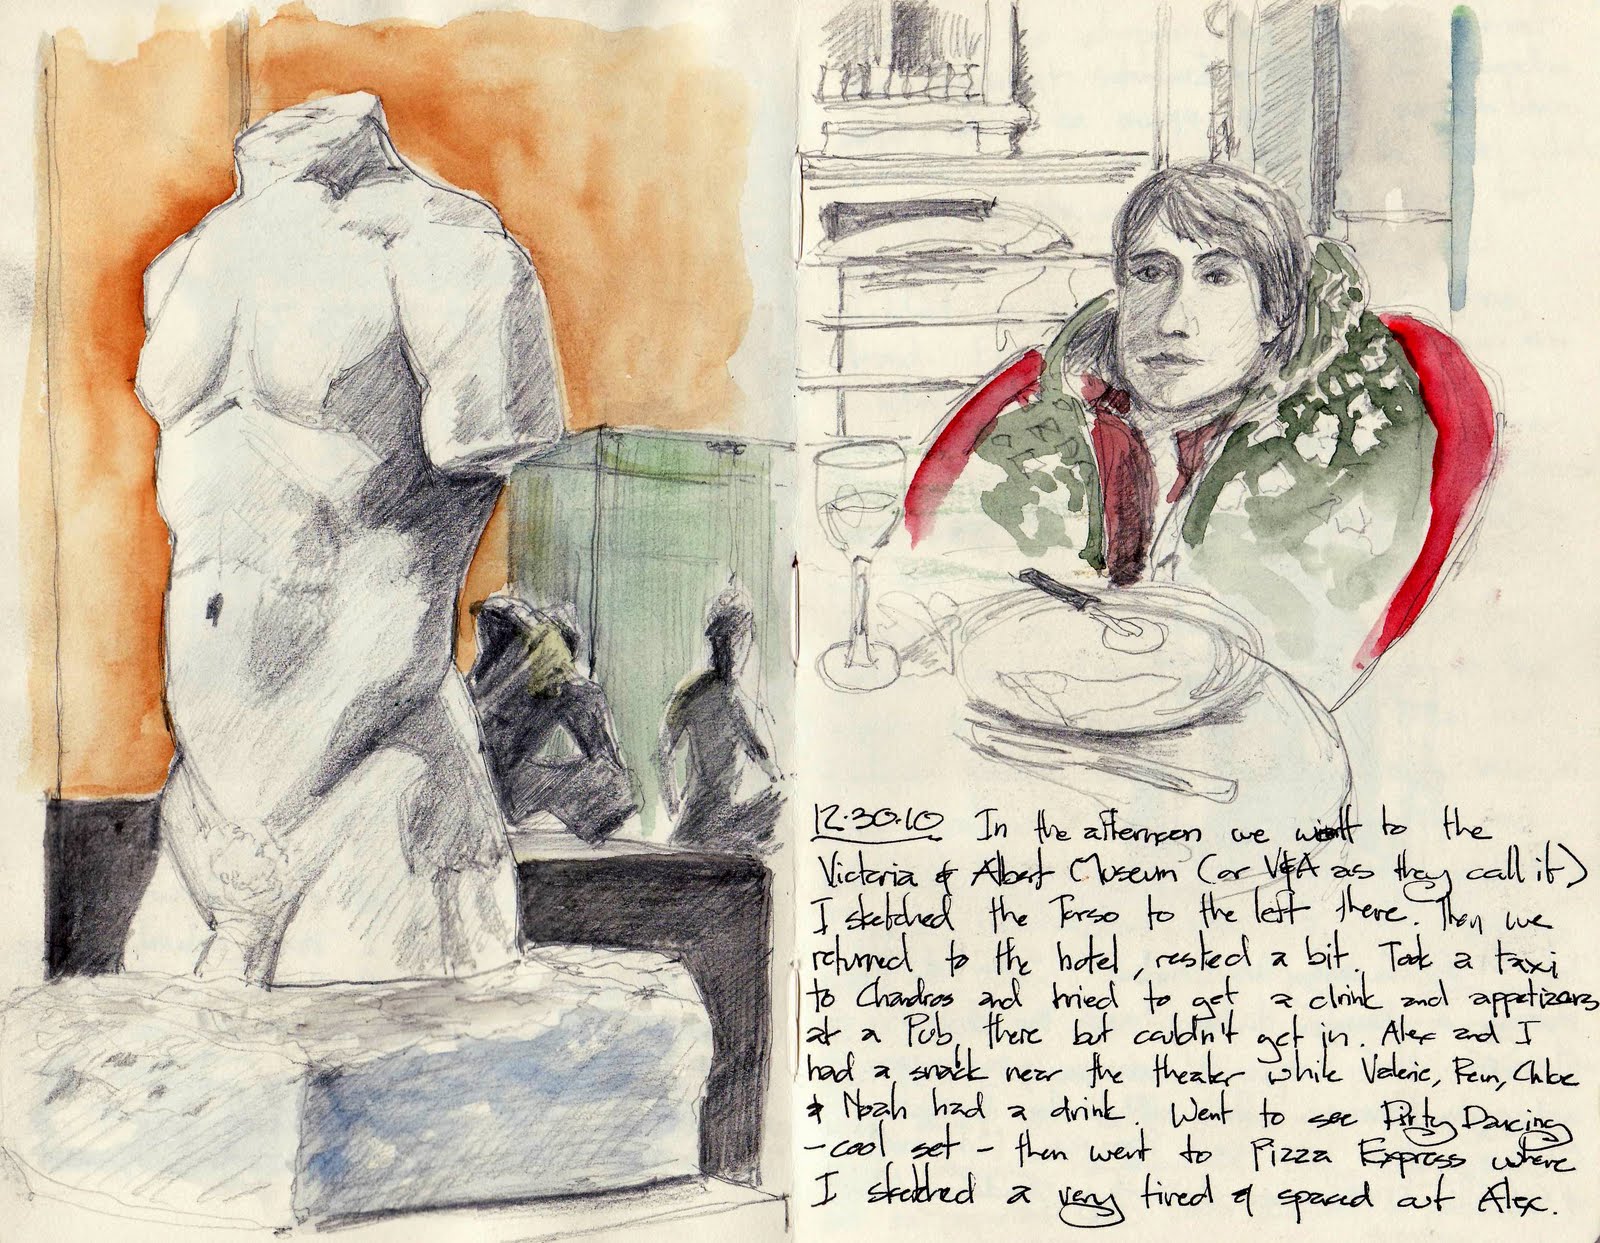 12.30.10 In the afternoon we went to the
Victoria & Albert Museum (or V&A as they call it)
I sketched the Torso to the left there. Then we
returned to the hotel, rested a bit. Took a taxi
to Chandros and tried to get a drink and appetizers
at a Pub there but couldn't get in. Alex and I
had a snack near the theater while Valerie, Chloe
& Noah had a drink. Went to see Dirty Dancing
-cool set - then went to Pizza Express where
I sketched a very tired & spaced out Alex.